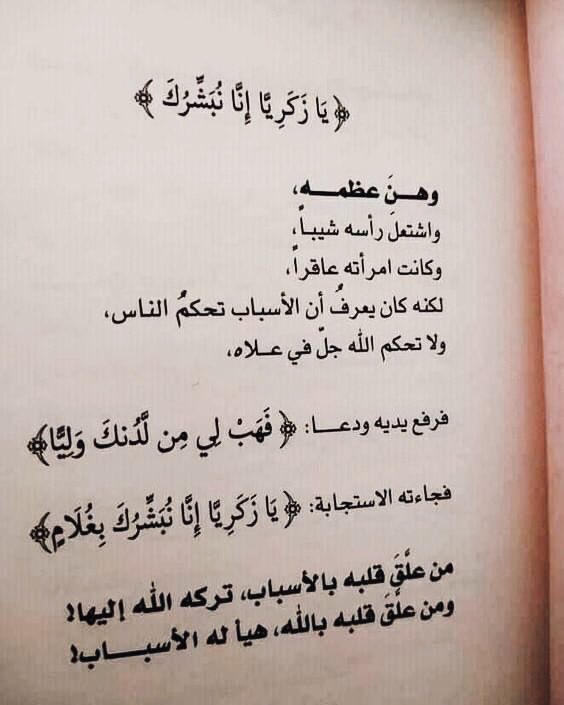 ﴿ يَا زَكَرِيَّا إِنَّا نُبَشِّرُكَ ﴾
وهـنَ عظمـــه،
واشتعلَ رأسه شيبـاً،
وكانت امرأته عاقراً،
لكنه كان يعرفُ أن الأسباب تحكمُ الناس،
ولا تحكم الله جلّ في عــلاه،
فرفع يديه ودعـــا: ﴿ فَهَبْ لِي مِن لَّدُنكَ وَلِيًّا﴾
فجاءته الاستجابة: ﴿ يَا زَكَرِيَّا إِنَّا نُبَشِّرُكَ بِغُلَامٍ﴾
من علَّقَ قلبه بالأسباب، تركه الله إليها!
ومن علَّقَ قلبه بالله، هيأ له الأسبـــاب!